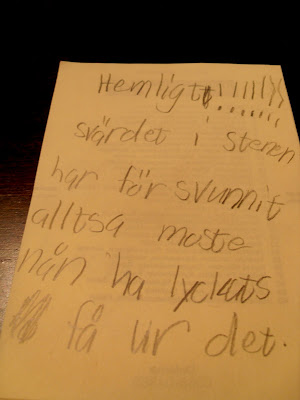 Hemligt!!!!!!!!
svärdet i stenen
har för svunnit
alltsa moste
nån ha lyckats
få ur det.